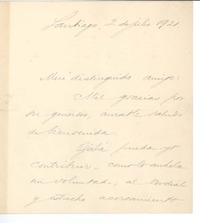 Santiago, 2 de julio 1921.
Mui distinguido amigo:
Mil gracias por
su generoso, amable saludo
de bienvenida.
Ojalá pueda yo
contribuir - como lo anhela
mi voluntad, al cordial
y estrecho acercamiento